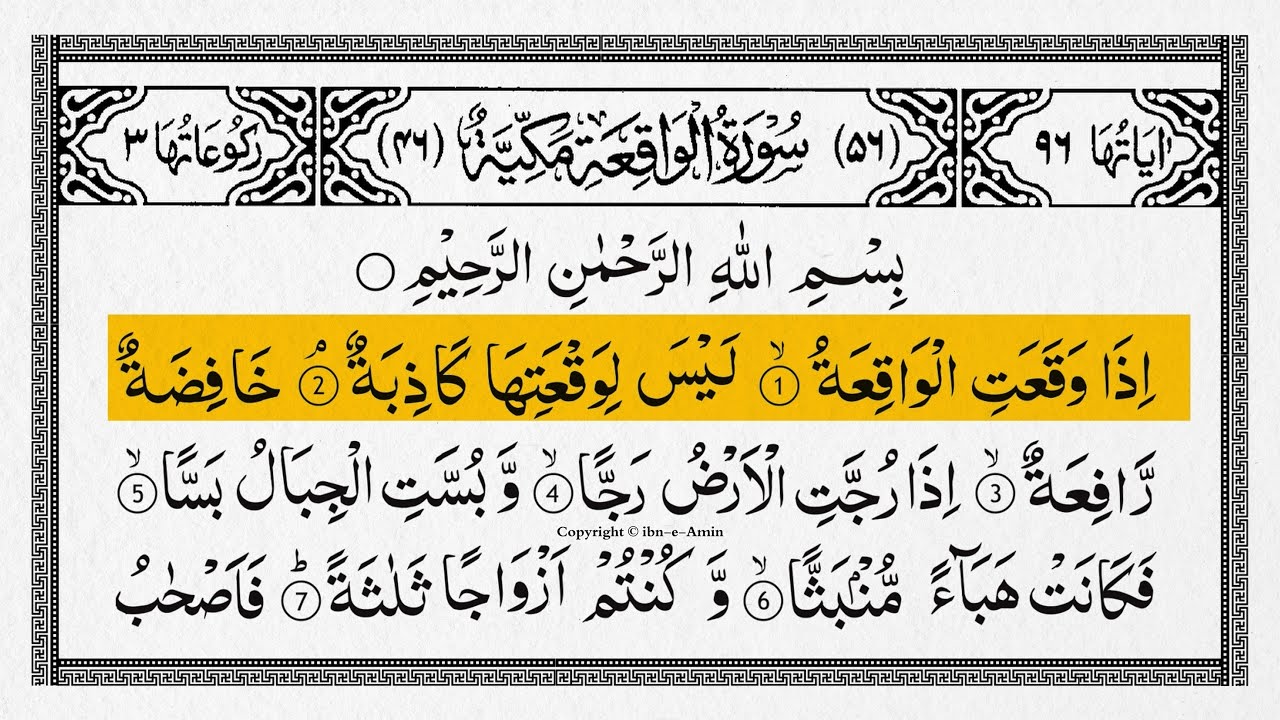 اٰیَاتُهَا ۹۶ (۵۶) سُوْرَةُ الْوَاقِعَةِ مَكِّيَّةٌ (۴۶) رُكُوْعَاتُهَا ۳
بِسْمِ اللّٰهِ الرَّحْمٰنِ الرَّحِيْمِ ○
اِذَا وَقَعَتِ الْوَاقِعَةُ ۙ ① لَيْسَ لِوَقْعَتِهَا كَاذِبَةٌ ۘ ② خَافِضَةٌ
رَّافِعَةٌ ۙ ③ اِذَا رُجَّتِ الْاَرْضُ رَجًّا ۙ ④ وَّ بُسَّتِ الْجِبَالُ بَسًّا ۙ ⑤
Copyright © ibn-e-Amin
فَكَانَتْ هَبَآءً مُّنْۢبَثًّا ۙ ⑥ وَّ كُنْتُمْ اَزْوَاجًا ثَلٰثَةً ؕ ⑦ فَاَصْحٰبُ